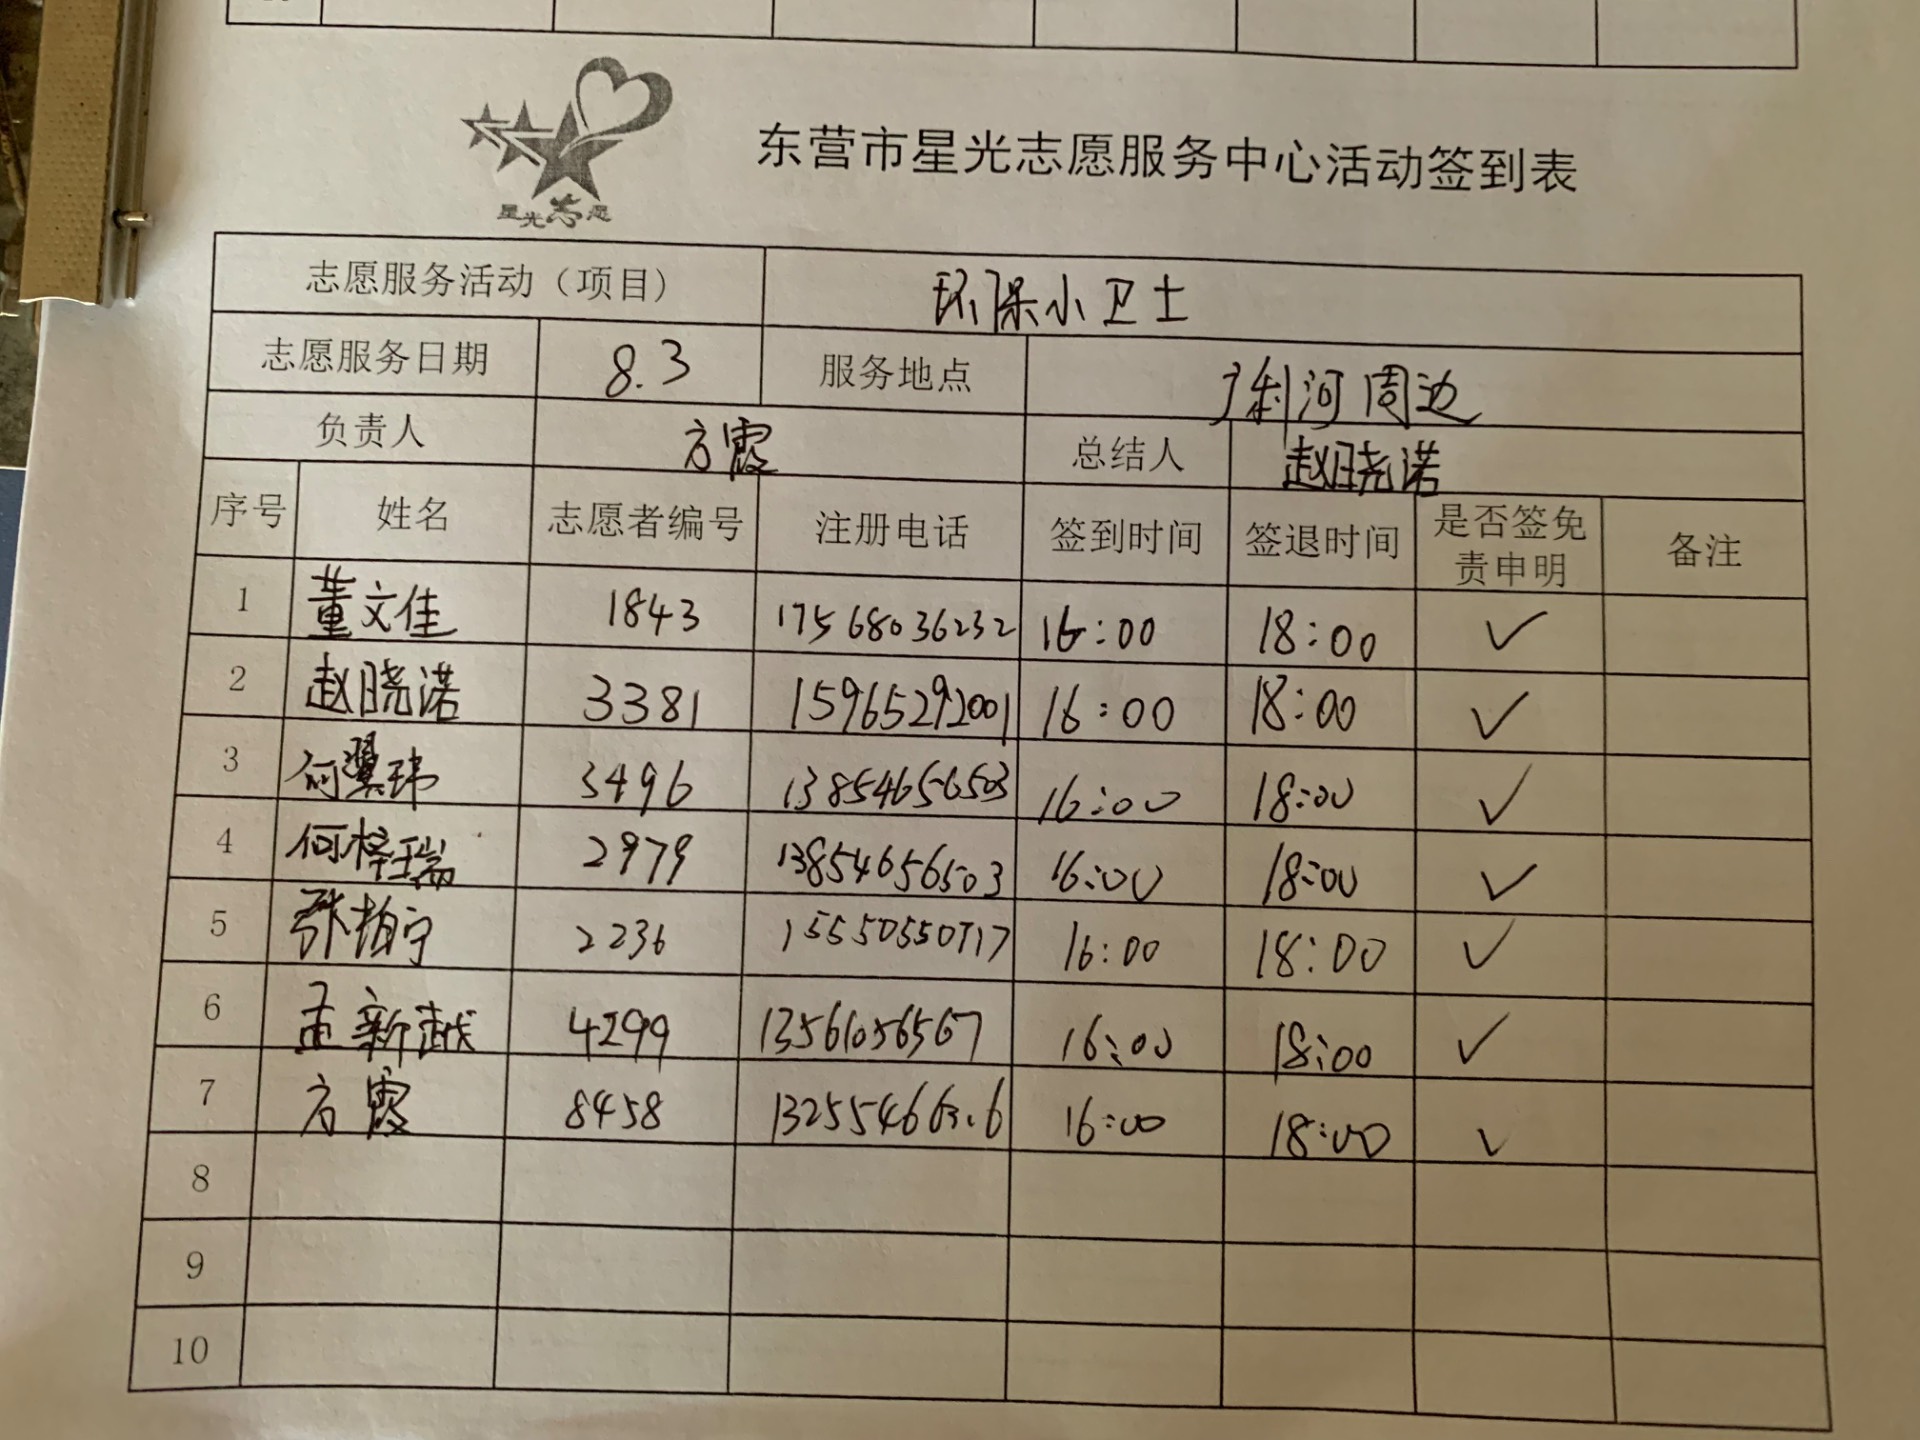 星光志愿
东营市星光志愿服务中心活动签到表
志愿服务活动（项目） 环保小卫士
志愿服务日期 8.3 服务地点 广利河周边
负责人 方霞 总结人 赵晓诺
序号 姓名 志愿者编号 注册电话 签到时间 签退时间 是否签免责申明 备注
1 董文佳 1843 17568036232 16:00 18:00 ✓
2 赵晓诺 3381 15965292001 16:00 18:00 ✓
3 何翼玮 3496 13854656503 16:00 18:00 ✓
4 何梓瑞 2979 13854656503 16:00 18:00 ✓
5 张柏宁 2236 16:00 18:00 ✓
6 孟新越 4299 13561056567 16:00 18:00 ✓
7 方霞 8458 16:00 18:00 ✓
8
9
10